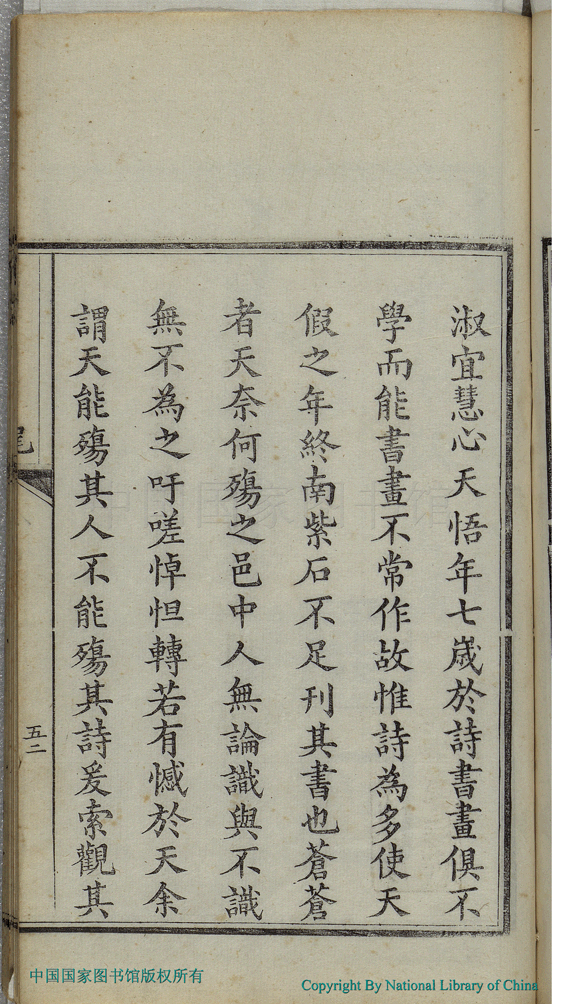 淑宜慧心天悟年七歲於詩書畫俱不
學而能書畫不常作故惟詩為多使天
假之年終南紫石不足刊其書也蒼蒼
者天奈何殤之邑中人無論識與不識
無不為之吁嗟悼怛轉若有憾於天余
謂天能殤其人不能殤其詩爰索觀其
尾
五二
中国国家图书馆
中国国家图书馆版权所有
Copyright By National Library of China